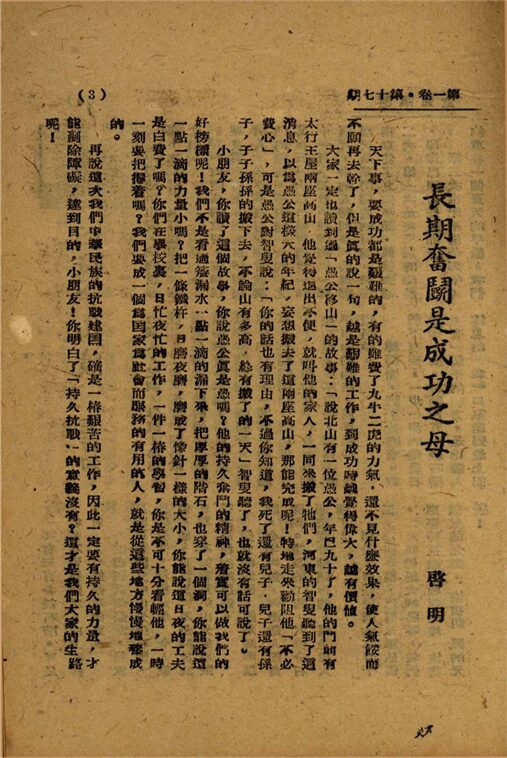 第一卷·第十七期
(3)
長期奮鬬是成功之母
啓明
天下事，要成功都是艱難的，有的雖費了九牛二虎的力氣，還不見什麽效果，使人氣餒而
不願再去幹了，但是眞的說一句，越是艱難的工作，到成功時越覺得偉大，越有價值。
大家一定也讀到過「愚公移山」的故事：「說北山有一位愚公，年已九十了，他的門前有
太行王屋兩座高山，他覺得進出不便，就叫他的家人，一同來搬了牠們，河東的智叟聽到了這
消息，以爲愚公這樣大的年紀，妄想搬去了這兩座高山，那能完成呢！特地走來勸阻他「不必
費心」，可是愚公對智叟說：「你的話也有理由，不過你知道，我死了還有兒子，兒子還有孫
子，子子孫孫的搬下去，不論山有多高，終有搬了的一天」智叟聽了，也就沒有話可說了。
小朋友，你讀了這個故事，你說愚公眞是愚嗎？他的持久奮鬥的精神，着實可以做我們的
好榜樣呢！我們不是看過簷漏水一點一滴的漏下來，把厚厚的階石，也穿了一個洞，你能說這
一點一滴的力量小嗎？把一條鐵杵，日磨夜磨，磨成了像針一樣的大小，你能說這日夜的工夫
是白費了嗎？你們在學校裏，日忙夜忙的工作，一件一樁的學習，你是不可十分看輕他，一時
一刻要把握着嗎？我們要成一個爲國家爲社會而服務的有用的人，就是從這些地方慢慢地養成
的。
再說這次我們中華民族的抗戰建國，確是一樁艱苦的工作，因此一定要有持久的力量，才
能剷除障礙，達到目的，小朋友！你明白了「持久抗戰」的意義沒有？這才是我們大家的生路
呢！